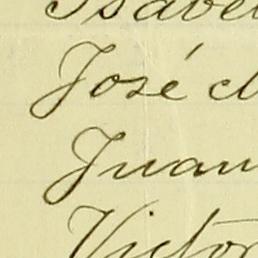 Isabel
José
Juan
Victor